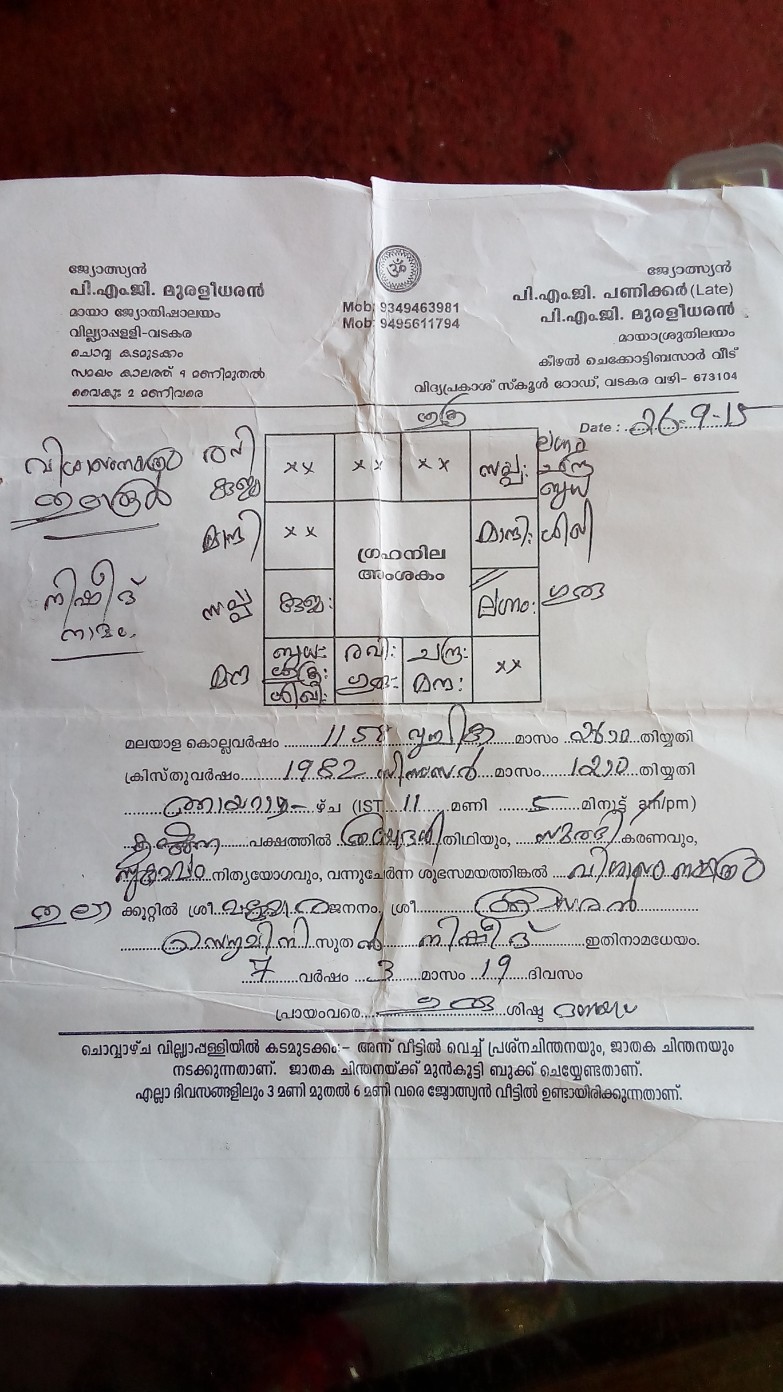 ജ്യോത്സ്യൻ
പി.എം.ജി. മുരളീധരൻ
മായാ ജ്യോതിഷാലയം
വില്ല്യാപ്പള്ളി-വടകര
ചൊവ്വ കടമുടക്കം
സമയം കാലത്ത് 9 മണിമുതൽ
വൈകു: 2 മണിവരെ
ॐ
Mob: 9349463981
Mob: 9495611794
ജ്യോത്സ്യൻ
പി.എം.ജി. പണിക്കർ (Late)
പി.എം.ജി. മുരളീധരൻ
മായാശ്രുതിലയം
കീഴൽ ചെക്കോട്ടിബസാർ വീട്
വിദ്യപ്രകാശ് സ്കൂൾ റോഡ്, വടകര വഴി- 673104
Date : 26-9-15
രവി
കുജ
xx xx xx സർപ്പ:
ലഗ്ന
ചന്ദ്ര
ബുധ
മാന്ദി xx മാന്ദി: ശിഖി
ഗ്രഹനില
അംശകം
നിഷീദ്
സർപ്പ കുജ: ലഗ്നം: ഗുരു
മന്ദ ബുധ: ശുക്ര: ശിഖി: രവി: ഗുരു: ചന്ദ്ര: മന്ദ: xx
മലയാള കൊല്ലവർഷം 1158 വൃശ്ചിക മാസം തിയ്യതി
ക്രിസ്തുവർഷം 1982 ഡിസംബർ മാസം 12ാം തിയ്യതി
ഞായറാഴ്ച (IST 11 മണി 5 മിനുട്ട് am/pm)
പക്ഷത്തിൽ തിഥിയും, കരണവും,
നിത്യയോഗവും, വന്നുചേർന്ന ശുഭസമയത്തിങ്കൽ വിശാഖം നക്ഷത്ര
തുലാ ക്കൂറ്റിൽ ശ്രീ ജനനം, ശ്രീ
സുതൻ നിഷീദ് ഇതിനാമധേയം.
7 വർഷം 3 മാസം 19 ദിവസം
പ്രായംവരെ ഗുരു ശിഷ്ട ദശയും
ചൊവ്വാഴ്ച വില്ല്യാപ്പള്ളിയിൽ കടമുടക്കം:- അന്ന് വീട്ടിൽ വെച്ച് പ്രശ്നചിന്തനയും, ജാതക ചിന്തനയും
നടക്കുന്നതാണ്. ജാതക ചിന്തനയ്ക്ക് മുൻകൂട്ടി ബുക്ക് ചെയ്യേണ്ടതാണ്.
എല്ലാ ദിവസങ്ങളിലും 3 മണി മുതൽ 6 മണി വരെ ജ്യോത്സ്യൻ വീട്ടിൽ ഉണ്ടായിരിക്കുന്നതാണ്.